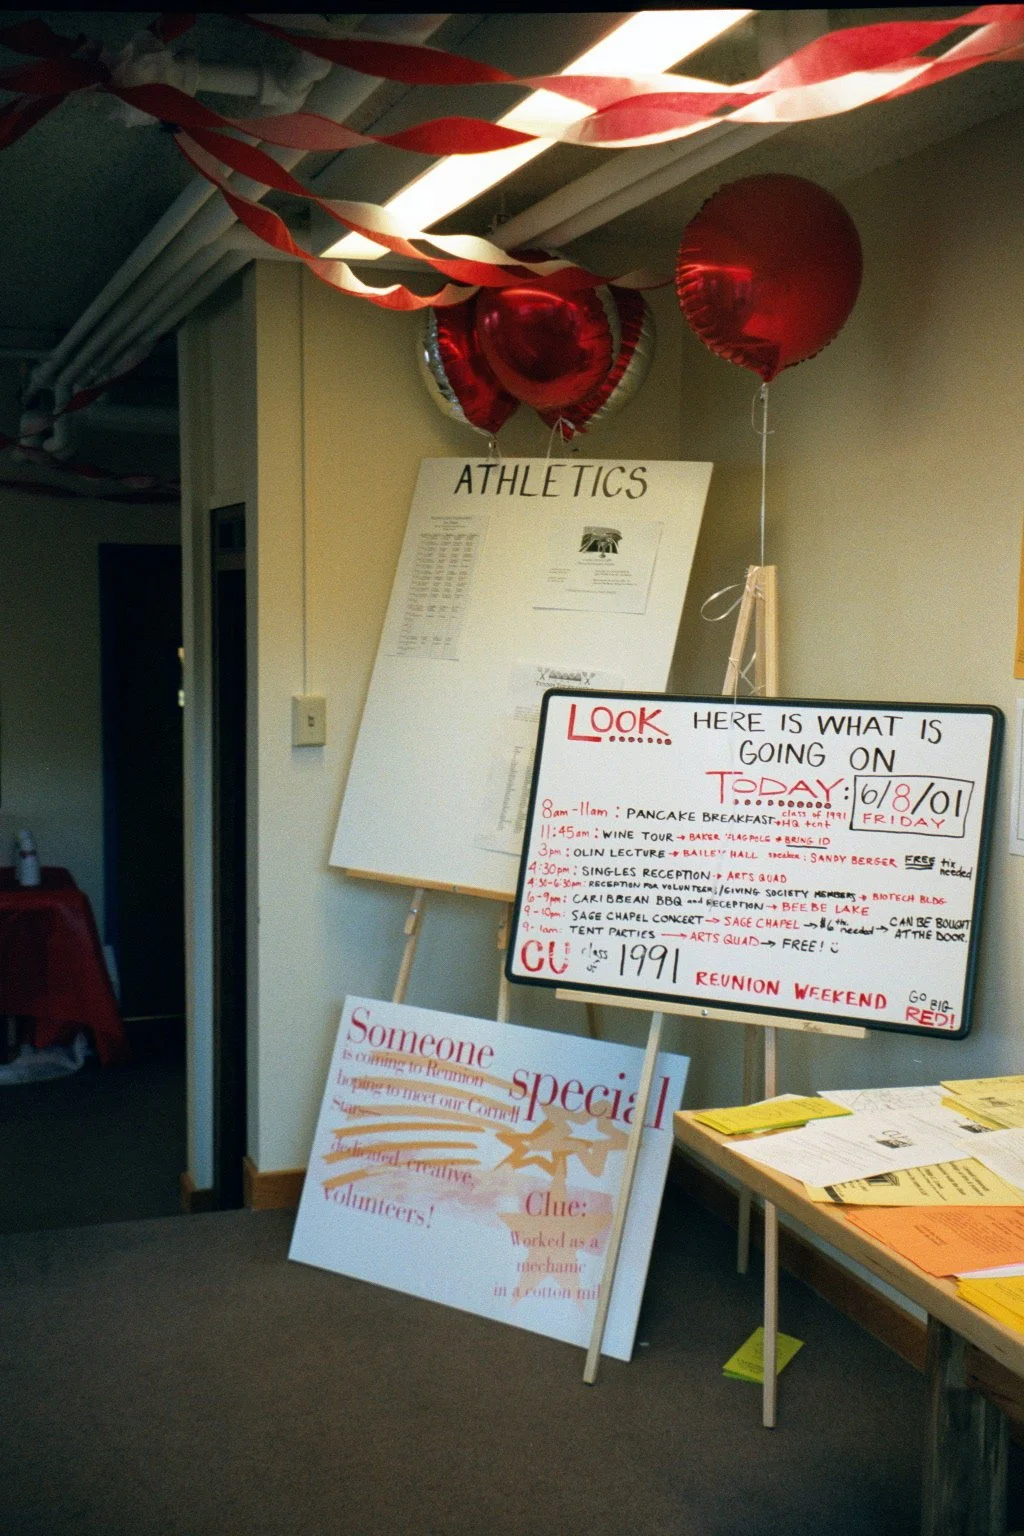 ATHLETICS
LOOK HERE IS WHAT IS
GOING ON
TODAY: 6/8/01
FRIDAY
8am-11am: PANCAKE BREAKFAST → class of 1991 HQ tent
11:45am: WINE TOUR → BAKER FLAGPOLE * BRING ID
3pm: OLIN LECTURE → BAILEY HALL speaker: SANDY BERGER FREE tix needed
4:30pm: SINGLES RECEPTION → ARTS QUAD
4:30-6:30pm: RECEPTION FOR VOLUNTEERS/GIVING SOCIETY MEMBERS → BIOTECH BLDG
6-9pm: CARIBBEAN BBQ and RECEPTION → BEEBE LAKE
9-10pm: SAGE CHAPEL CONCERT → SAGE CHAPEL → $6 tix needed → CAN BE BOUGHT AT THE DOOR.
9-1am: TENT PARTIES → ARTS QUAD → FREE! ☺
CU class of 1991 REUNION WEEKEND GO BIG RED!
Someone special
is coming to Reunion
hoping to meet our Cornell
Stars—
dedicated, creative,
volunteers!
Clue:
Worked as a
mechanic
in a cotton mill